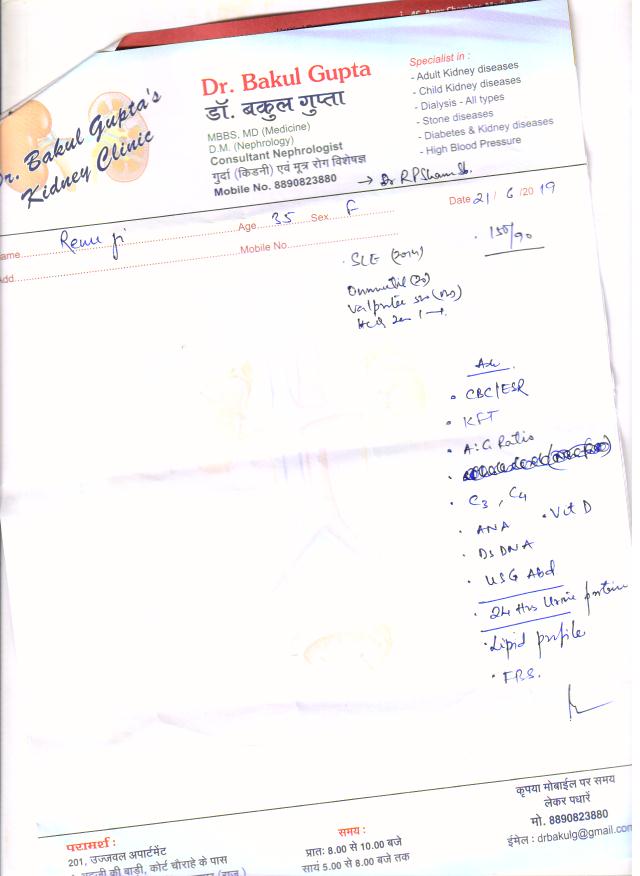 Dr. Bakul Gupta's
Kidney Clinic
Dr. Bakul Gupta
डॉ. बकुल गुप्ता
MBBS, MD (Medicine)
D.M. (Nephrology)
Consultant Nephrologist
गुर्दा (किडनी) एवं मूत्र रोग विशेषज्ञ
Mobile No. 8890823880
Specialist in :
- Adult Kidney diseases
- Child Kidney diseases
- Dialysis - All types
- Stone diseases
- Diabetes & Kidney diseases
- High Blood Pressure
→ Dr R P Sham
ame Renu ji Age 35 Sex F Date 21/6/2019
Add. Mobile No.
. 150/90
. SLE (2014)
CBC/ESR
KFT
A:G Ratio
C3, C4
ANA . Vit D
Ds DNA
USG Abd
24 Hrs Urine protein
Lipid profile
FBS.
परामर्श :
201, उज्जवल अपार्टमेंट
की बाड़ी, कोर्ट चौराहे के पास
समय :
प्रातः 8.00 से 10.00 बजे
सायं 5.00 से 8.00 बजे तक
कृपया मोबाईल पर समय
लेकर पधारें
मो. 8890823880
ईमेल : drbakulg@gmail.com